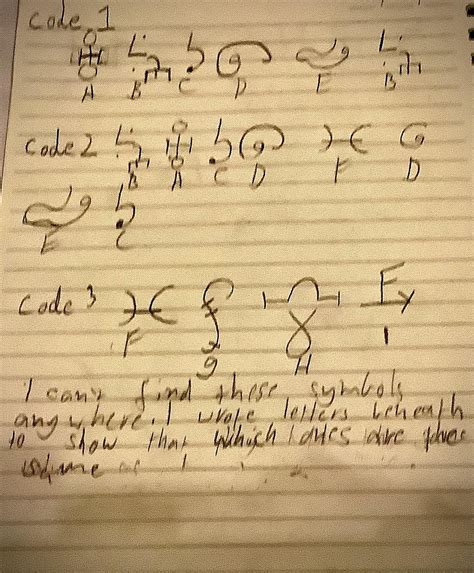 Code 1
A B C D E B
Code 2
B A C D F D
E C
Code 3
F g H I
I can't find these symbols
anywhere. I wrote letters beneath
to show that which ones are the
same